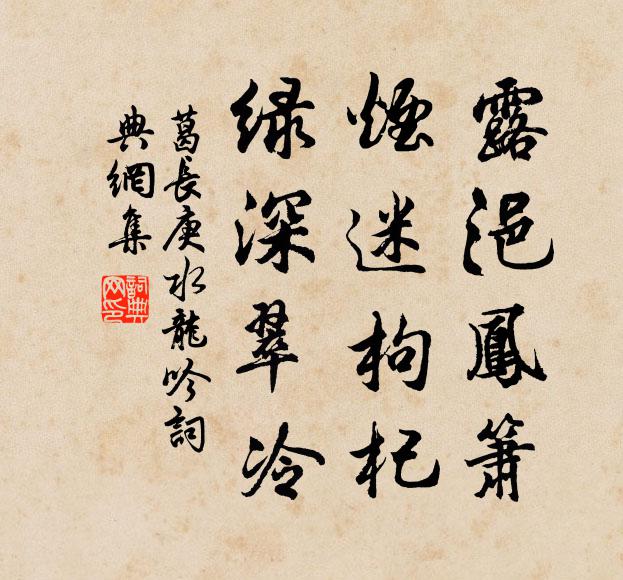 露浥鳳簫
煙迷枸杞
绿深翠冷
葛長庚水龍吟詞
典網集
詞典
网印